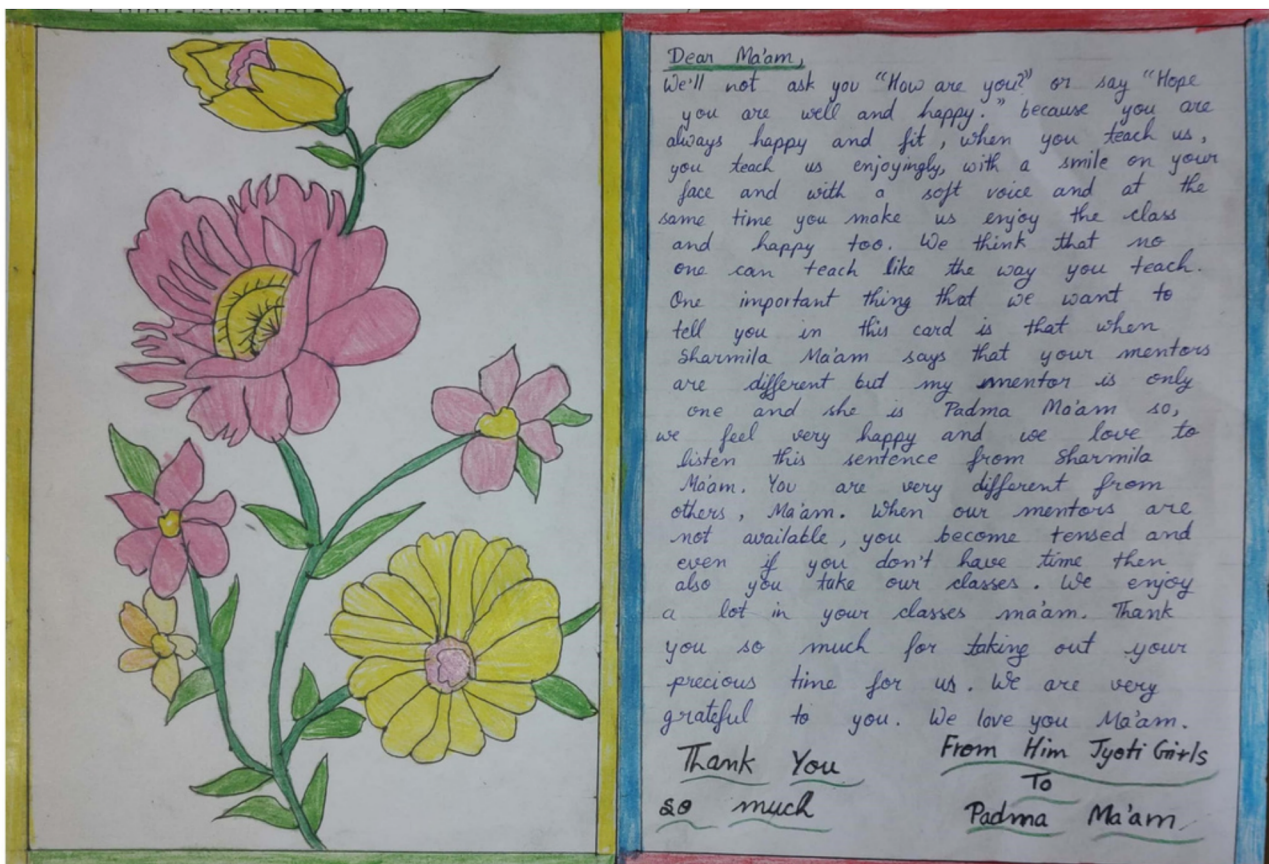 Dear Ma'am,
We'll not ask you "How are you?" or say "Hope
you are well and happy." because you are
always happy and fit, when you teach us,
you teach us enjoyingly, with a smile on your
face and with a soft voice and at the
same time you make us enjoy the class
and happy too. We think that no
one can teach like the way you teach.
One important thing that we want to
tell you in this card is that when
Sharmila Ma'am says that your mentors
are different but my mentor is only
one and she is Padma Ma'am so,
we feel very happy and we love to
listen this sentence from Sharmila
Ma'am. You are very different from
others, Ma'am. When our mentors are
not available, you become tensed and
even if you don't have time then
also you take our classes. We enjoy
a lot in your classes ma'am. Thank
you so much for taking out your
precious time for us. We are very
grateful to you. We love you Ma'am.
Thank You
so much
From Him Jyoti Girls
To
Padma Ma'am